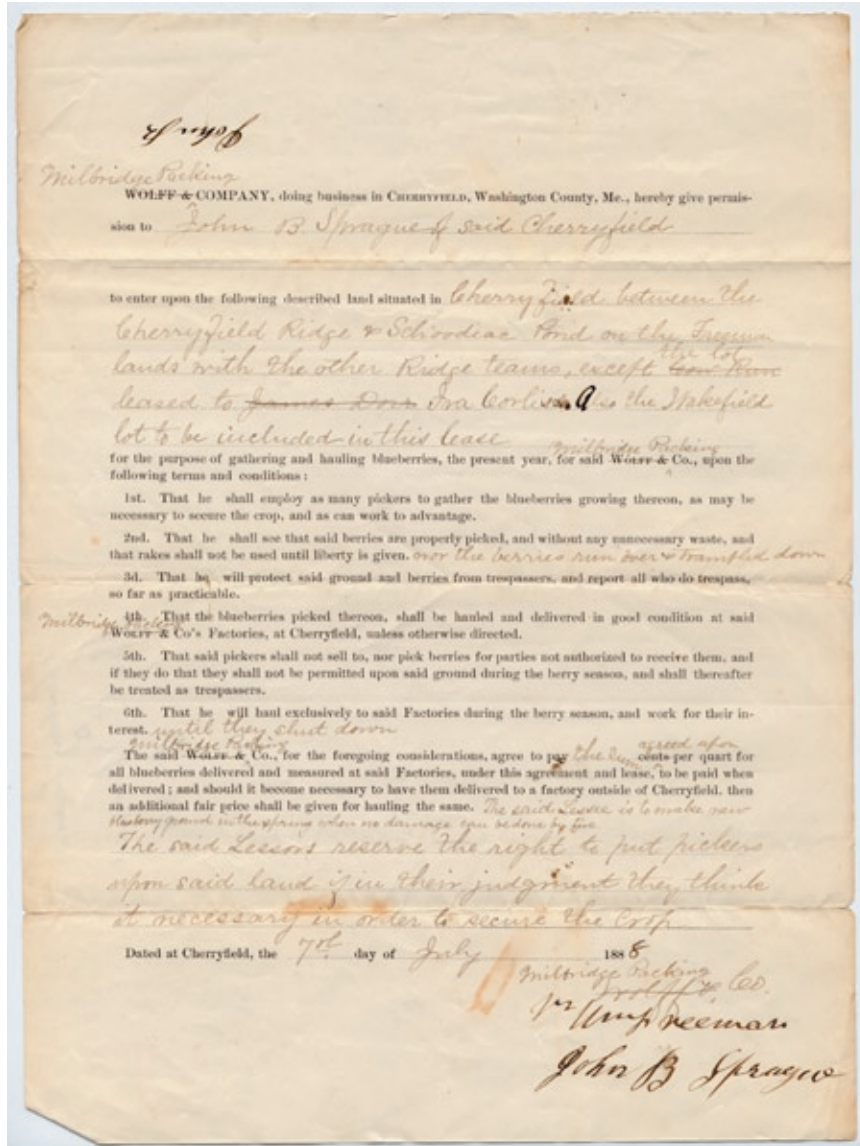 John B
Milbridge Packing
WOLFF & COMPANY, doing business in CHERRYFIELD, Washington County, Me., hereby give permis-
sion to John B. Sprague of said Cherryfield
to enter upon the following described land situated in Cherryfield between the
Cherryfield Ridge & Schoodiac Pond on the Freeman
lands with the other Ridge teams, except the lot
leased to James Dorr Ira Corliss. Also the Wakefield
lot to be included in this lease
Milbridge Packing
for the purpose of gathering and hauling blueberries, the present year, for said WOLFF & Co., upon the
following terms and conditions:
1st. That he shall employ as many pickers to gather the blueberries growing thereon, as may be
necessary to secure the crop, and as can work to advantage.
2nd. That he shall see that said berries are properly picked, and without any unnecessary waste, and
that rakes shall not be used until liberty is given. nor the berries run over & trampled down
3d. That he will protect said ground and berries from trespassers, and report all who do trespass,
so far as practicable.
4th. That the blueberries picked thereon, shall be hauled and delivered in good condition at said
Milbridge Packing
WOLFF & Co's Factories, at Cherryfield, unless otherwise directed.
5th. That said pickers shall not sell to, nor pick berries for parties not authorized to receive them, and
if they do that they shall not be permitted upon said ground during the berry season, and shall thereafter
be treated as trespassers.
6th. That he will haul exclusively to said Factories during the berry season, and work for their in-
terest. until they shut down
Milbridge Packing
The said WOLFF & Co., for the foregoing considerations, agree to pay the agreed upon cents per quart for
all blueberries delivered and measured at said Factories, under this agreement and lease, to be paid when
delivered; and should it become necessary to have them delivered to a factory outside of Cherryfield, then
an additional fair price shall be given for hauling the same. The said Lessee is to make new
blueberry ground in the spring when no damage can be done by fire
The said Lessors reserve the right to put pickers
upon said land if in their judgment they think
it necessary in order to secure the Crop
Dated at Cherryfield, the 7th day of July 1888
Milbridge Packing
Wolff & Co.
pr Wm Freeman
John B Sprague